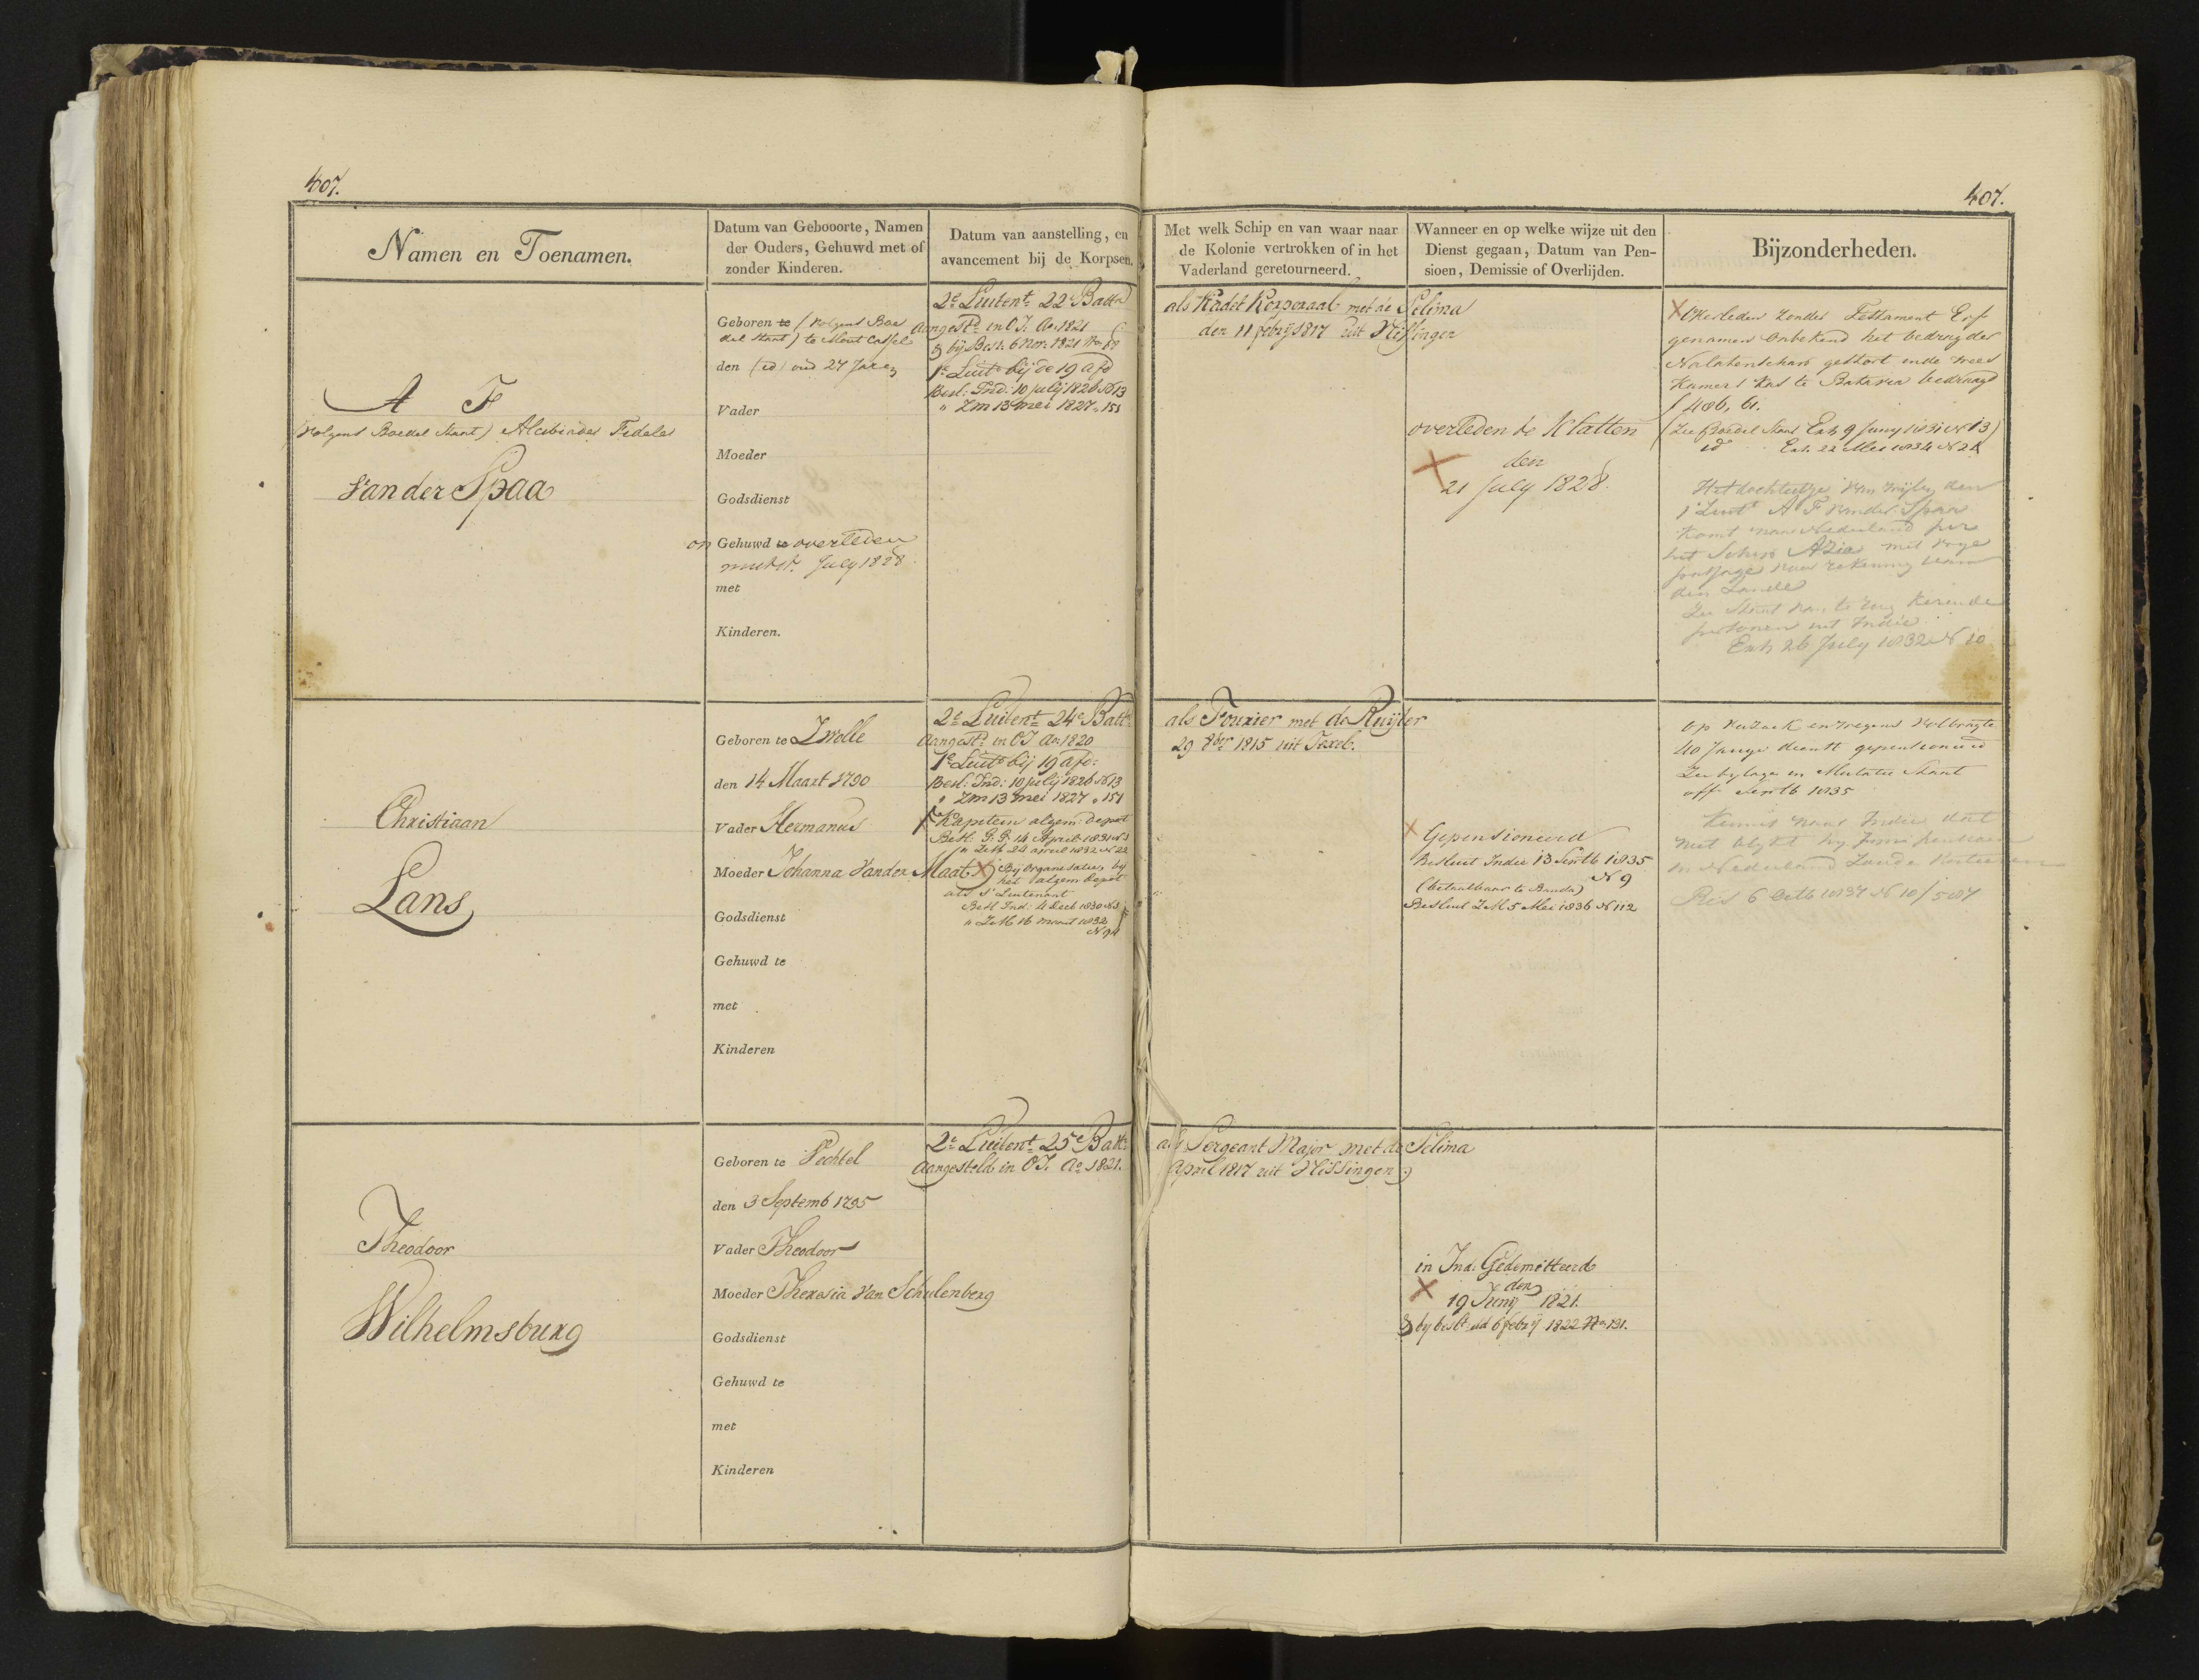 407.
407.
Namen en Toenamen.
Datum van Gebooorte, Namen
der Ouders, Gehuwd met of
zonder Kinderen.
Datum van aanstelling, en
avancement bij de Korpsen.
Met welk Schip en van waar naar
de Kolonie vertrokken of in het
Vaderland geretourneerd.
Wanneer en op welke wijze uit den
Dienst gegaan, Datum van Pen-
sioen, Demissie of Overlijden.
Bijzonderheden.
A F
(Volgens Boedel Staat) Alcibiades Fidele
Van der Spaa
Geboren te (Volgens Boe
del Staat) te Mont Cassel
den (id) oud 27 Jaren
Vader
Moeder
Godsdienst
on Gehuwd te overleden
July 1828.
met
Kinderen.
2e Luitent 22e Battn
Aangestd in O.I. Ao 1821
& bij Besl. 6 Nov. 1821 No 69
1e Luitt bij de 19 afd
Besl: Ind: 10 julij 1826 N 13
" Zm 13 mei 1827 " 151
als Kadet Korporaal met de Selima
den 11 febrij 1817 uit Vlissingen
overleden te Klatten
den
21 July 1828.
Overleden zonder Testament Erf
genamen Onbekend het bedrag der
Nalatenschap gestort in de Wees
Kamers Kas te Batavia bedraagd
f 406, 61.
(Zie Boedel Staat Exh 9 Juny 1831 N 13)
id Exh 22 Mei 1834 N 21
Het dochtertje van wijlen den
1 Luitt A F van der Spaa
komt naar Nederland per
het Schip Azia met vrye
passage voor rekening van
den Lande
Zie Staat van te rug kerende
personen uit Indie
Exh 26 July 1832 N 10
Christiaan
Lans
Geboren te Zwolle
den 14 Maart 1790
Vader Hermanus
Moeder Johanna Van der Maat
Godsdienst
Gehuwd te
met
Kinderen
2e Luitent 24e Battn
Aangestd in O.I. Ao 1820
1e Luitt bij 19 afd:
Besl: Ind: 10 julij 1826 N 13
" Zm 13 mei 1827 " 151
Kapitein algem: depot
Besl. G.G. 14 April 1831 N 3
" ZM 24 april 1832 N 22
Bij Organisatie bij
het algem Depot
als 1 Luitenant
Besl Ind: 4 Decb 1830 N 3
" ZM 16 maart 1832
N 94
als Fourier met de Ruijter
29 8ber 1815 uit Texel.
Gepensioneerd
Besluit Indie 13 Septb 1835
N 9
(betaalbaar te Banda)
Besluit ZM 5 Mei 1836 N 112
Op Verzoek en wegens Volbragte
40 Jarige dienst gepensioneerd
Zie bylage en Mutatie Staat
off Septb 1835
Kennis naar Indie dat
niet blykt hy zyn pensioen
in Nederland zoude
Res 6 Octb 1837 N 10/507
Theodoor
Wilhelmsburg
Geboren te Vechtel
den 3 Septemb 1795
Vader Theodoor
Moeder Theresia Van Schulenberg
Godsdienst
Gehuwd te
met
Kinderen
2e Luitent 25e Battn
Aangesteld in O.I. Ao 1821.
als Sergeant Major met de Selima
April 1817 uit Vlissingen
in Ind: Gedemitteerd
den
19 Junij 1821.
& bij beslt dd 6 febrij 1822 No 131.